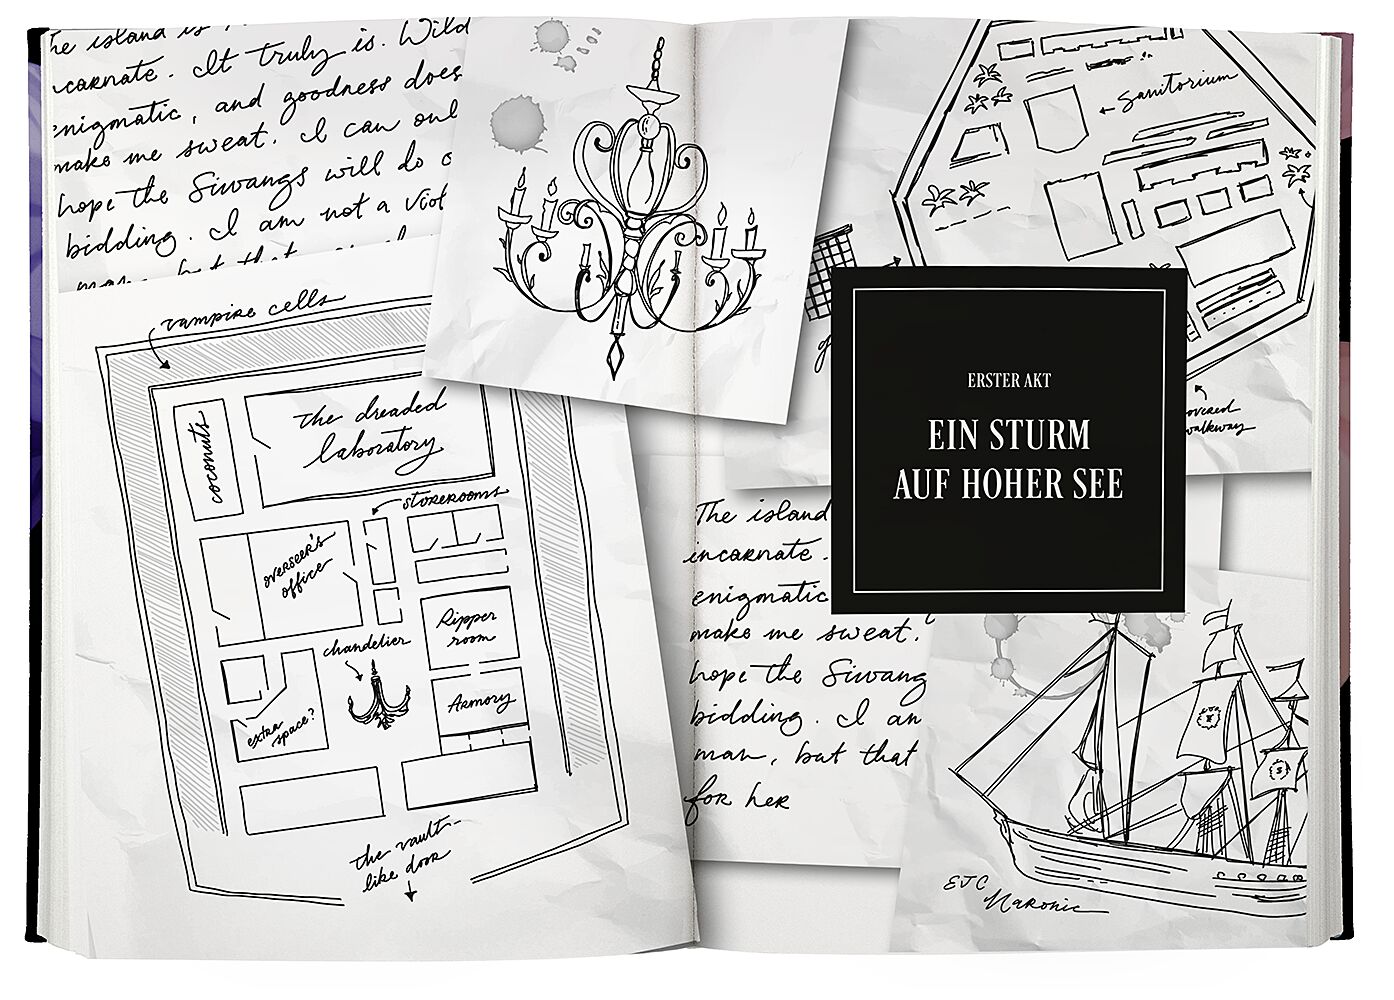 he island is
ncarnate. It truly is. Wild
enigmatic, and goodness does
make me sweat. I can onl
hope the Siwangs will do
bidding. I am not a viol
man, but that
vampire cells
coconuts
the dreaded
laboratory
storerooms
overseer's
office
chandelier
Ripper
room
Armory
extra
space?
the vault-
like door
Sanitorium
overed
walkway
ERSTER AKT
EIN STURM
AUF HOHER SEE
The island
incarnate.
enigmatic
make me sweat.
hope the Siwang
bidding. I am
man, but that
for her
EJC
Naronic